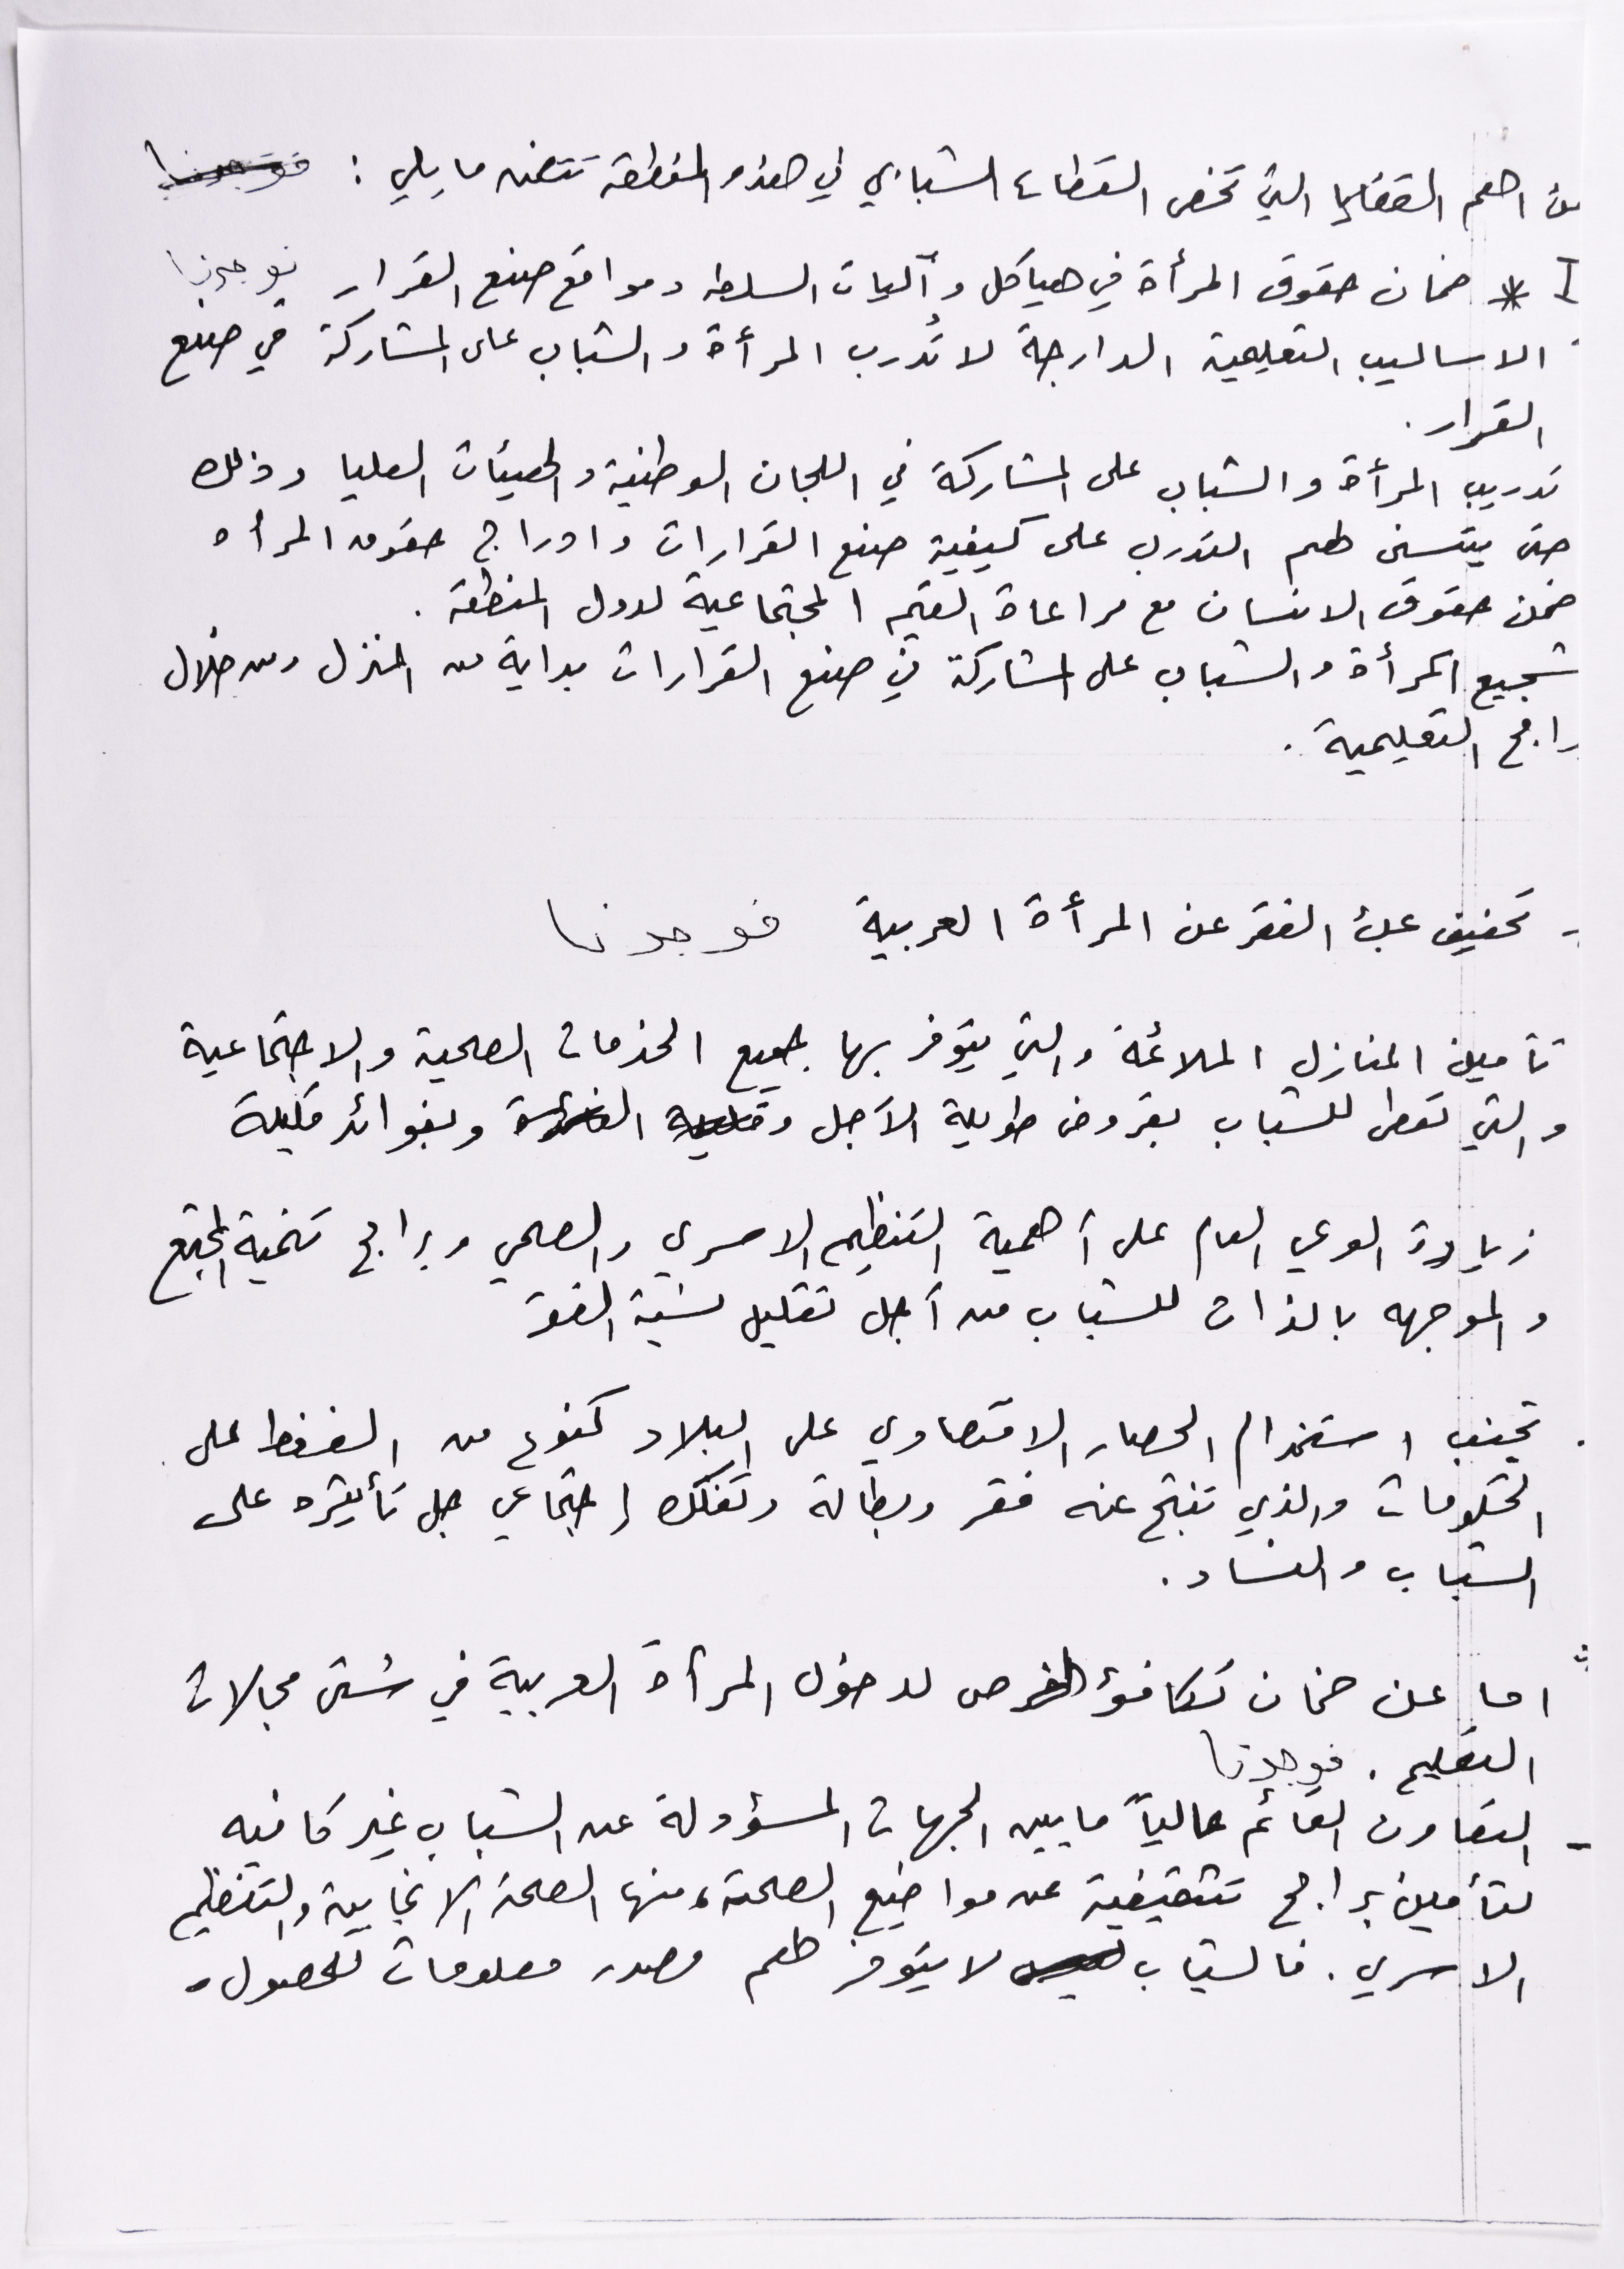 من اهم القضايا التي تخص القطاع الشبابي في هذه المنطقة تتضمن ما يلي : فوجدنا
I * ضمان حقوق المرأة في هياكل وآليات السلطه ومواقع صنع القرار فوجدنا
الاساليب التعليمية الدارجة لا تُدرب المرأة والشباب على المشاركة في صنع
القرار.
تدريب المرأة والشباب على المشاركة في اللجان الوطنية والهيئات العليا وذلك
حتى يتسنى لهم التدرب على كيفية صنع القرارات وادراج حقوق المرأه
ضمن حقوق الانسان مع مراعاة القيم المجتماعية لدول المنطقة .
تشجيع المرأة والشباب على المشاركة في صنع القرارات بداية من المنزل ومن خلال
رامج التعليمية .
- تخفيف عبء الفقر عن المرأة العربية فوجدنا
تأمين المنازل الملائمة والتي يتوفر بها جميع الخدمات الصحية والاجتماعية
والتي تعطى للشباب بقروض طويلة الآجل وقليلة الفائدة وبفوائد قليلة
زيادة الوعي العام على أهمية التنظيم الاسري والصحي وبرامج تنمية المجتمع
والموجهه بالذات للشباب من أجل تقليل نسبة الفقر
. تجنب استخدام الحصار الاقتصادي على البلاد كنوع من الضغط على
الحكومات والذي تنتج عنه فقر وبطالة وتفكك إجتماعي جل تأثيره على
الشباب والنساء.
اما عن ضمان تكافؤ الفرص لدخول المرأة العربية في شتى مجالات
التعليم . فوجدنا
- التعاون القائم حالياً ما بين الجهات المسؤولة عن الشباب غير كافيه
لتأمين برامج تثقيفية عن مواضيع الصحة، منها الصحة الانجابية والتنظيم
الاسري. فالشباب ليس لا يتوفر لهم مصدر معلومات للحصول